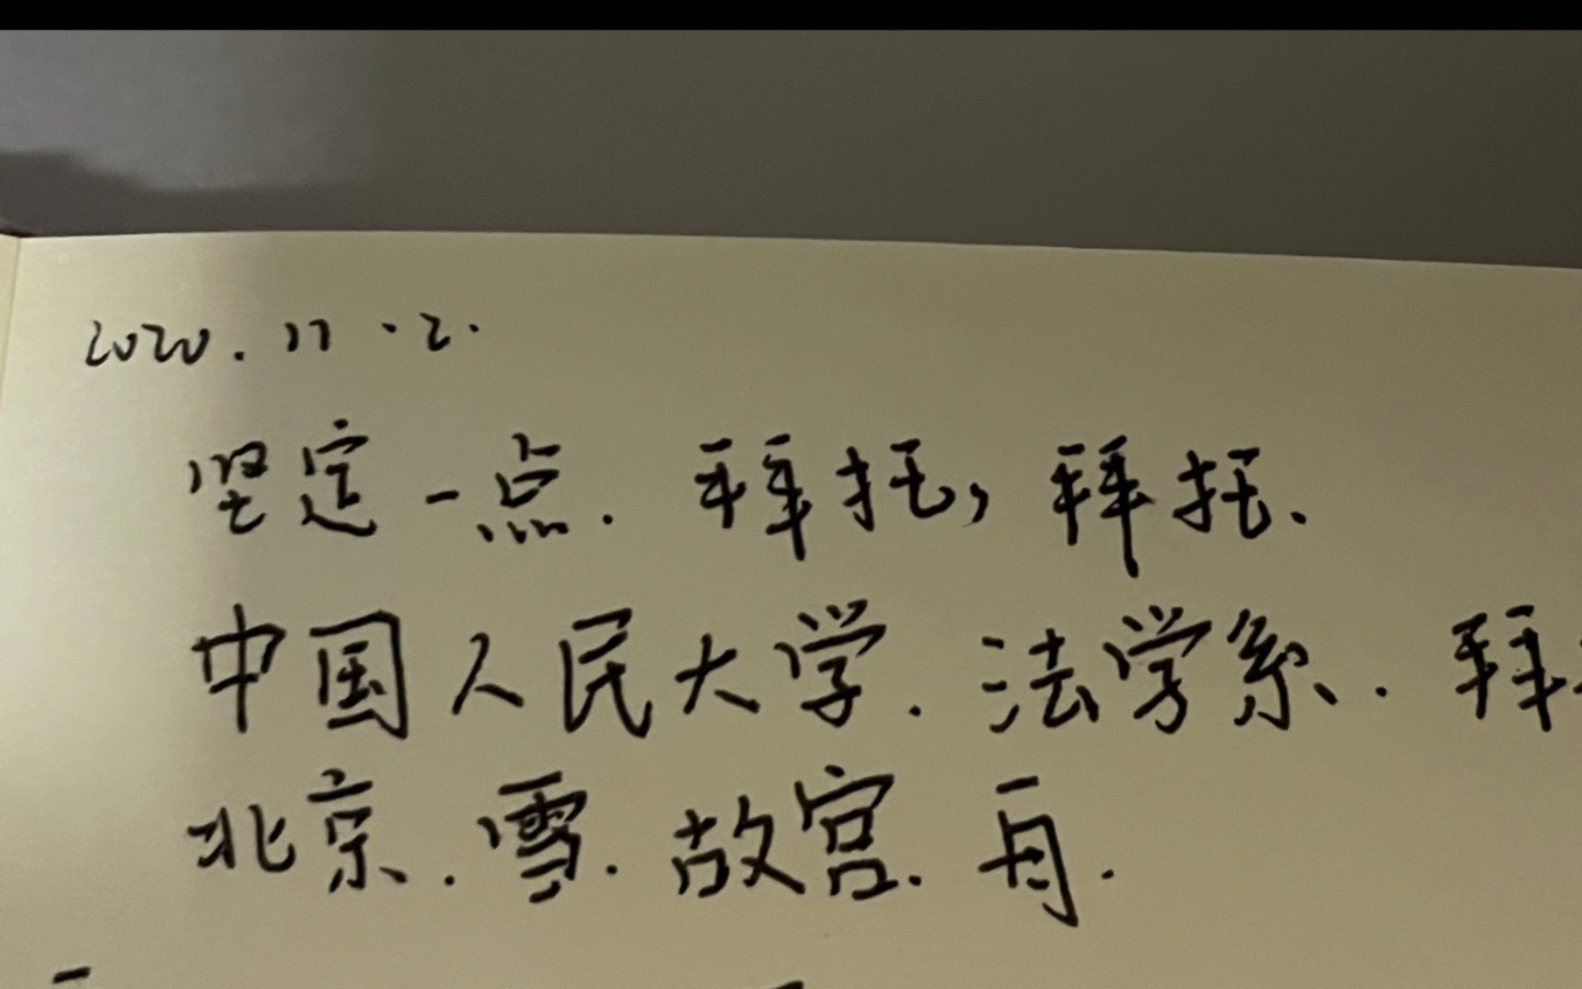 2020.11.2.
坚定一点. 拜托, 拜托.
中国人民大学. 法学系. 拜
北京. 雪. 故宫. 再.